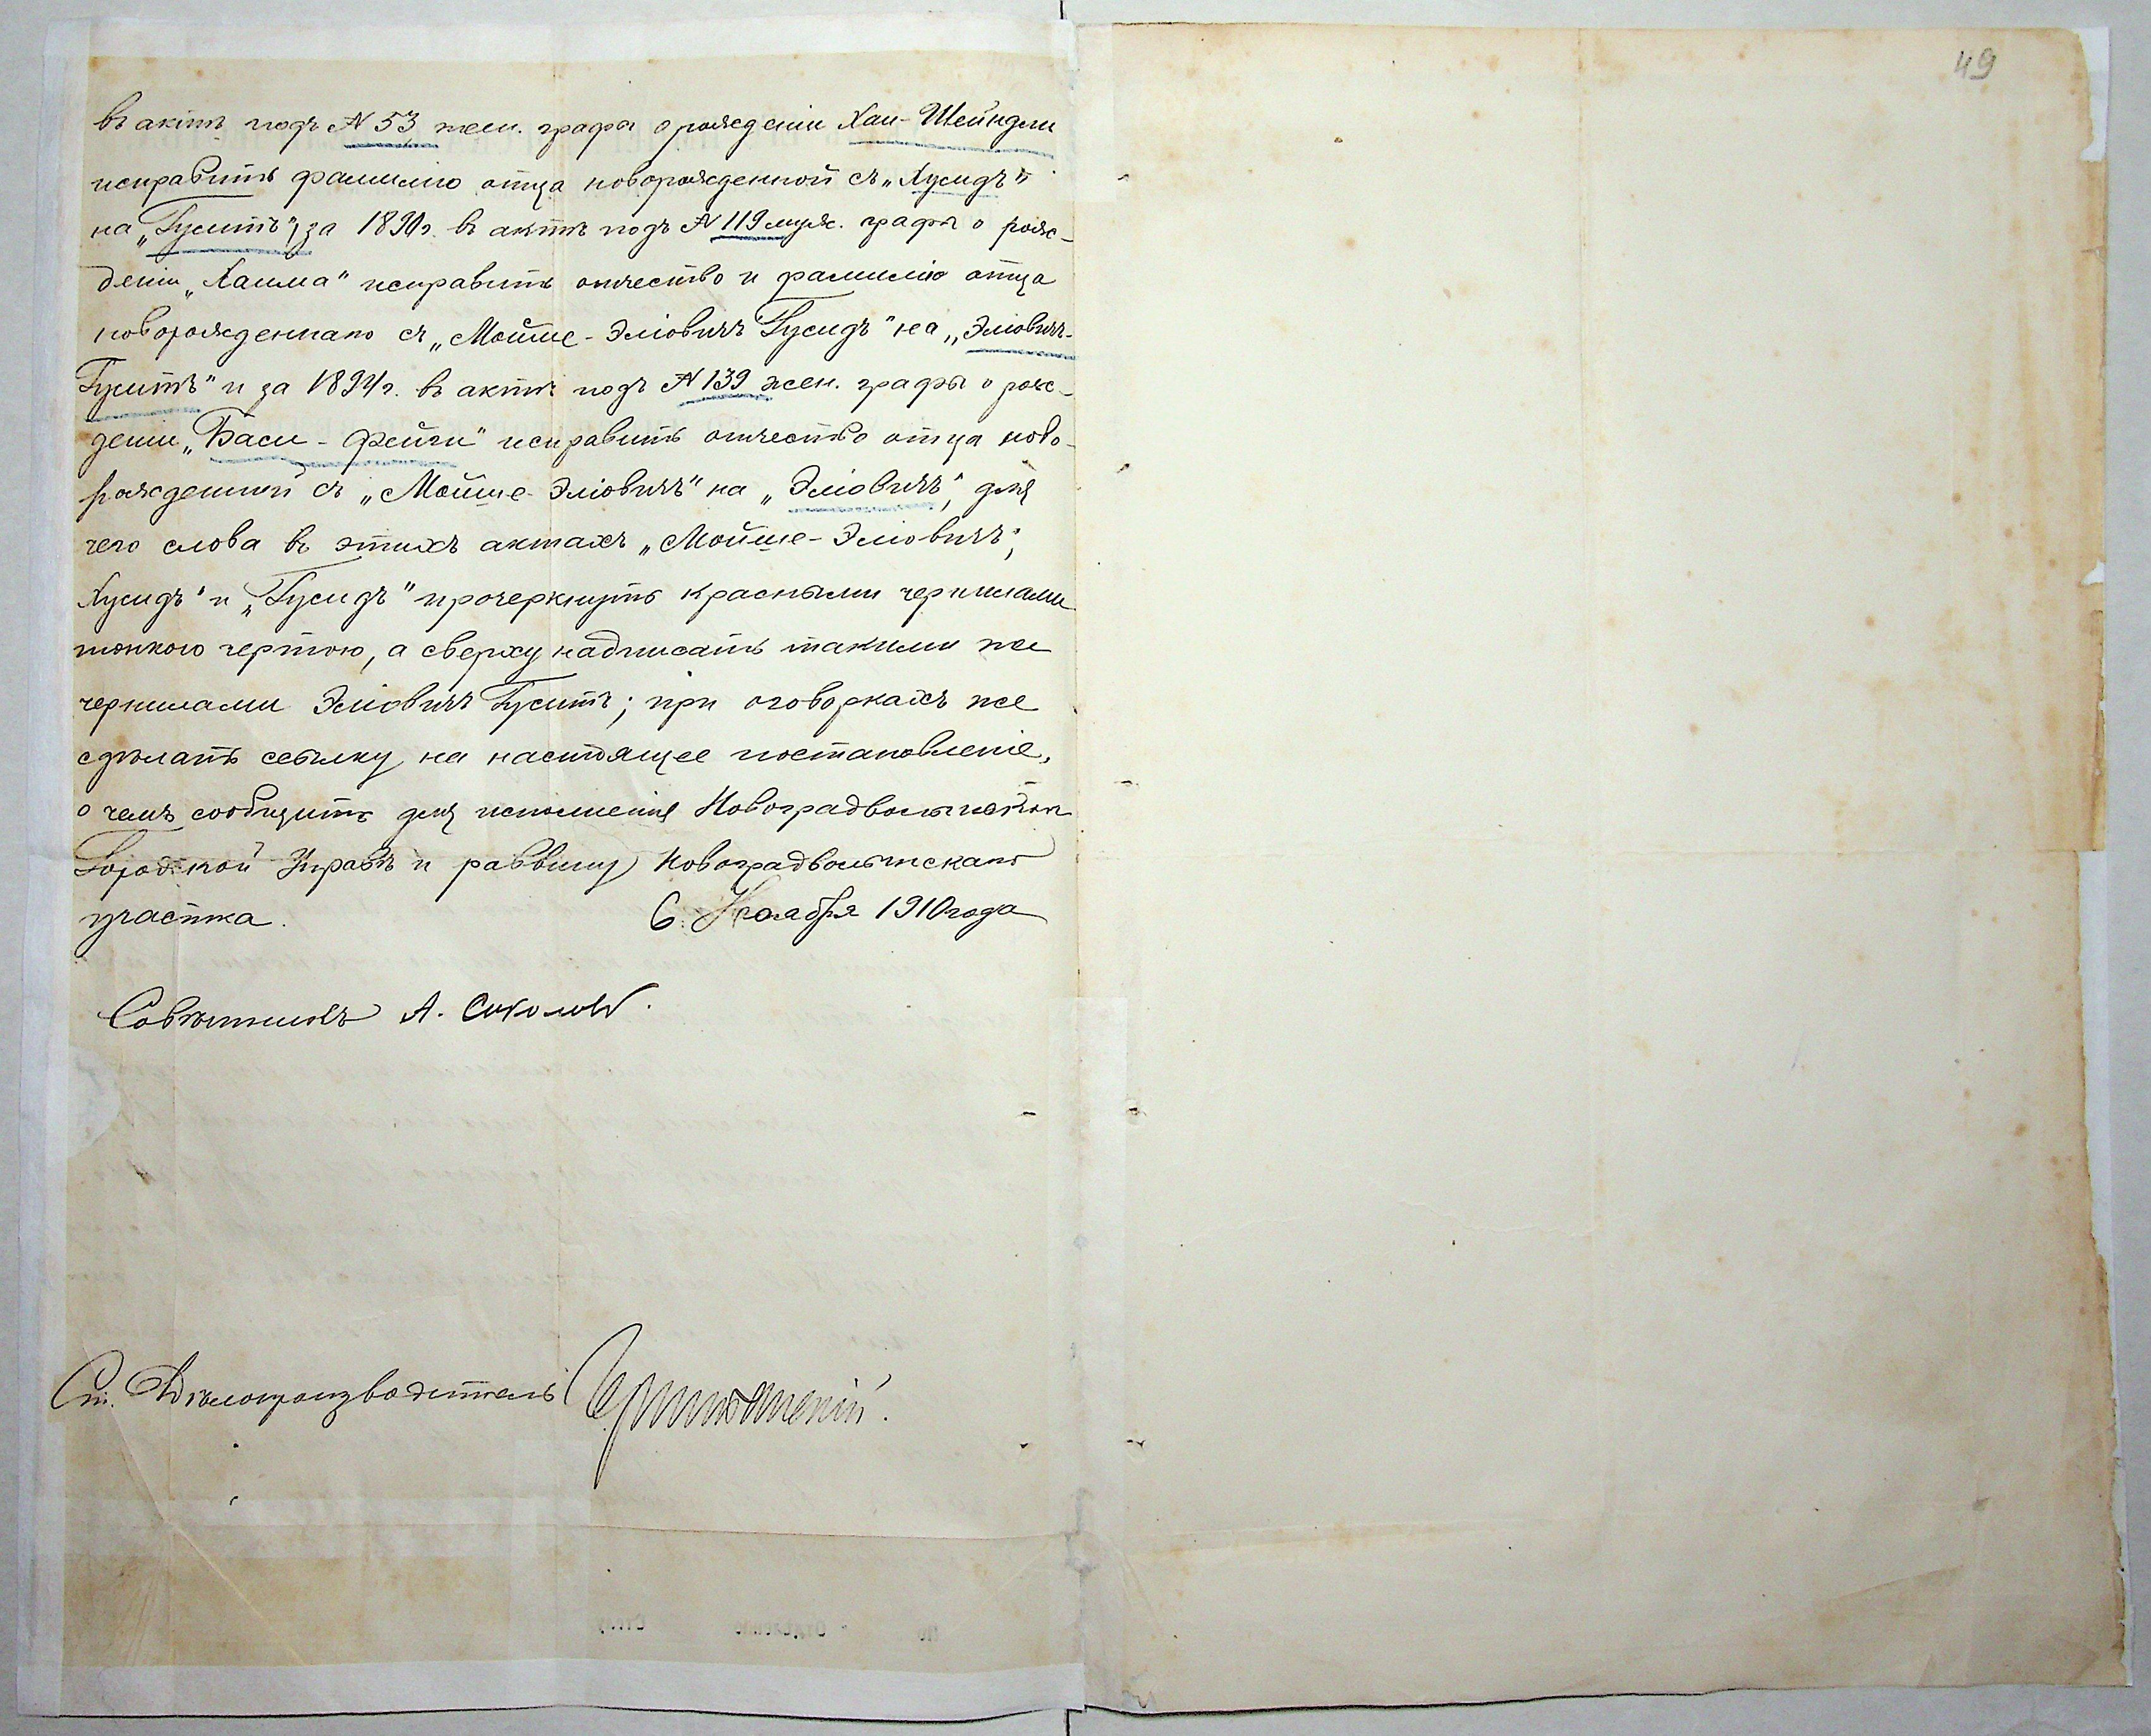 въ актѣ подъ № 53 жен. графы о рожденіи Хаи-Шейндли
исправить фамилію отца новорожденной съ „Хусидъ"
на „Гуситъ", за 1890г. въ актѣ подъ № 119 муж. графы о рож-
деніи „Хаима" исправить отчество и фамилію отца
новорожденнаго съ „Мойше-Эліовичъ Гусидъ" на „Эліовичъ-
Гуситъ" и за 1894г. въ актѣ подъ № 139 жен. графы о рож-
деніи „Баси-Фейги" исправить отчество отца ново-
рожденной съ „Мойше-Эліовичъ" на „Эліовичъ", для
чего слова въ этихъ актахъ „Мойше-Эліовичъ",
Хусидъ" и „Гусидъ" прочеркнуть красными чернилами
тонкою чертою, а сверху надписать такими же
чернилами Эліовичъ Гуситъ; при оговоркахъ же
сдѣлать ссылку на настоящее постановленіе,
о чемъ сообщить для исполненія Новоградволынской
Городской Управѣ и раввину Новоградволынскаго
участка. 6 Ноября 1910 года
Совѣтникъ А. Соколовъ.
Ст. Дѣлопроизводитель
49